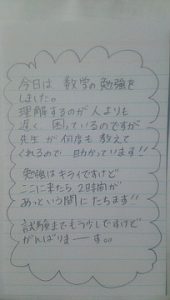 今日は 数学の勉強を
しました。
理解するのが 人よりも
遅く 困っているのですが
先生が何度も教えて
くれるので 助かっています!!
勉強はキライですけど
ここに来たら2時間が
あっという間にたちます!!
試験までもう少しですけど
がんばりまーす。。。